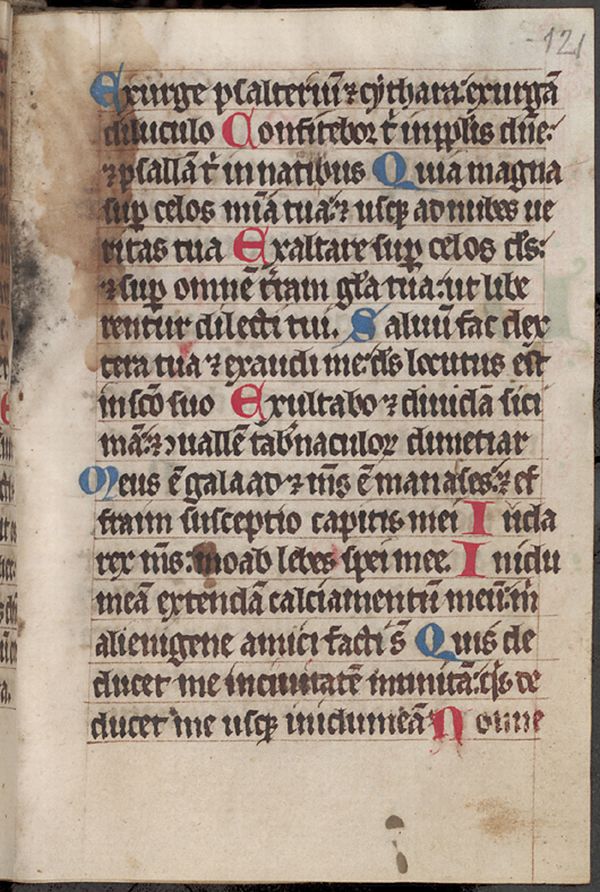 121
Exurge psalteriū ⁊ cythara: exurgā
diluculo Confitebor t̄ in pp̄lis dn̄e:
⁊ psallā t̄ in natibus Quia magna
sup celos mīa tua: ⁊ usq; ad nubes ue
ritas tua Exaltare sup celos ds̄:
⁊ sup omnē t̄ram gl̄a tua: ut libe
rentur dilecti tui. Saluū fac dex
tera tua ⁊ exaudi me: ds̄ locutus est
in sc̄o suo Exultabo ⁊ diuidā sici
mā: ⁊ ↄuallē tab̄naculoꝝ dimetiar
Meus ē galaad ⁊ ms̄ ē manases: ⁊ ef
fraim susceptio capitis mei Iuda
rex ms̄: moab lebes spei mee. In idu
meā extendā calciamentū meū: m̄
alienigene amici facti s̄ Quis de
ducet me in ciuitatē munitā: q̄s de
ducet me usq; in idumeā Nonne